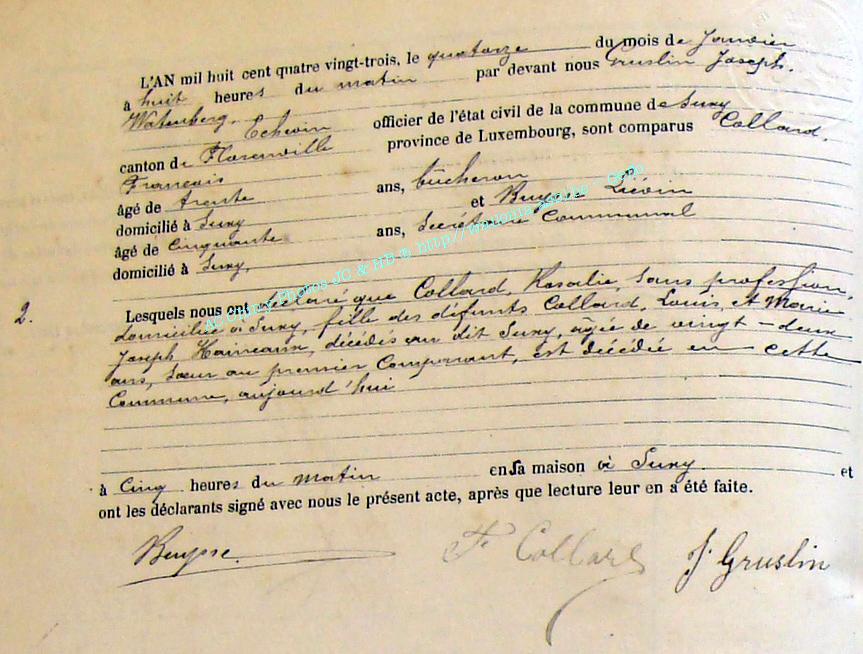 L'AN mil huit cent quatre vingt-trois, le quatorze du mois de Janvier
à huit heures du matin par devant nous Gruslin Joseph.
Watenberg. Echevin officier de l'état civil de la commune de Suxy
canton de Florenville province de Luxembourg, sont comparus Collard.
François
âgé de trente ans, bûcheron
domicilié à Suxy et Buysse Liévin
âgé de Cinquante ans, Secrétaire Communal
domicilié à Suxy,
2.
Lesquels nous ont déclaré que Collard, Rosalie, Sans profession,
domiciliée à Suxy, fille des défunts Collard, Louis, et Marie
Joseph Haineaux, décédés au dit Suxy, âgée de vingt-deux
ans, Sœur au premier Comparant, est décédée en cette
Commune, aujourd'hui
à Cinq heures du matin en sa maison à Suxy et
ont les déclarants signé avec nous le présent acte, après que lecture leur en a été faite.
Buysse. F. Collard J. Gruslin